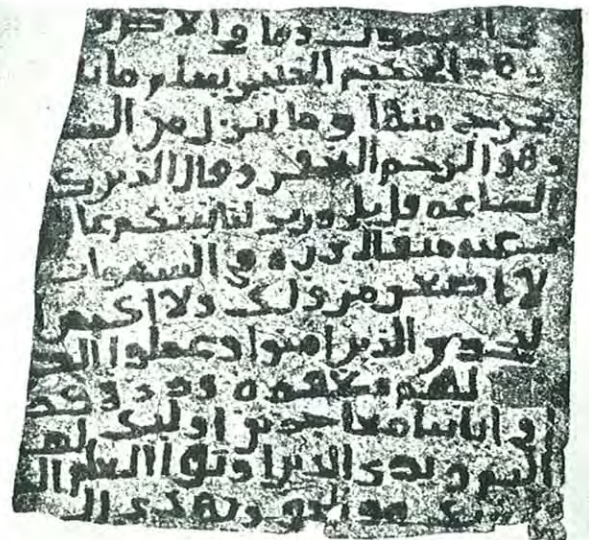 في السموت وما في الارض
وهو الحكيم الخبير يعلم ما يلـ
يخرج منها وما ينزل من السـ
وهو الرحيم الغفور وقال الذين كـ
الساعه قل بلى وربي لتاتينكم عا
عنه مثقال ذره في السموات
لا اصغر من ذلك ولا اكبر
ليجزي الذين امنوا وعملوا الصـ
لهم مغفره ورزق
في اياتنا معاجزين اوليك لهم
اليم ويرى الذين اوتوا العلم الـ
هو الحق ويهدي الى